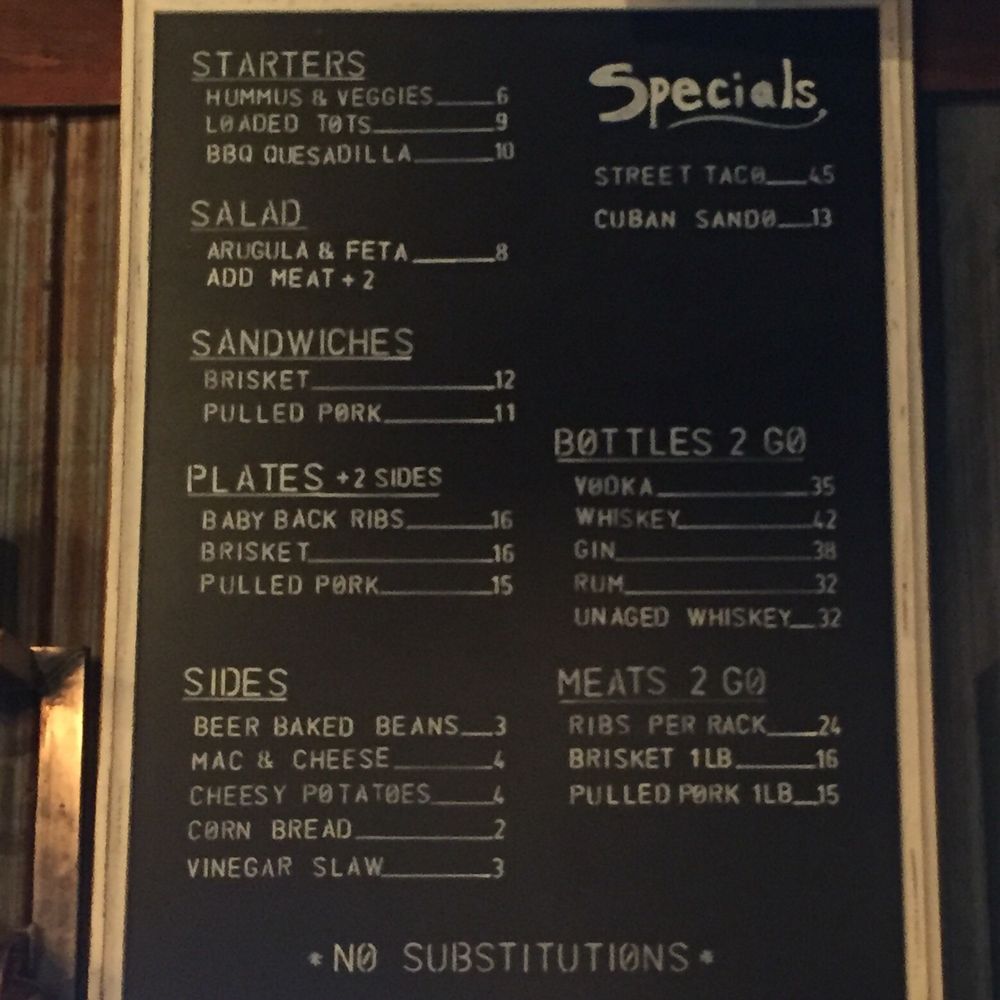 STARTERS
HUMMUS & VEGGIES 6
LOADED TOTS 9
BBQ QUESADILLA 10
SALAD
ARUGULA & FETA 8
ADD MEAT + 2
SANDWICHES
BRISKET 12
PULLED PORK 11
PLATES +2 SIDES
BABY BACK RIBS 16
BRISKET 16
PULLED PORK 15
SIDES
BEER BAKED BEANS 3
MAC & CHEESE 4
CHEESY POTATOES 4
CORN BREAD 2
VINEGAR SLAW 3
Specials
STREET TACO 4.5
CUBAN SANDO 13
BOTTLES 2 GO
VODKA 35
WHISKEY 42
GIN 38
RUM 32
UNAGED WHISKEY 32
MEATS 2 GO
RIBS PER RACK 24
BRISKET 1LB 16
PULLED PORK 1LB 15
* NO SUBSTITUTIONS *